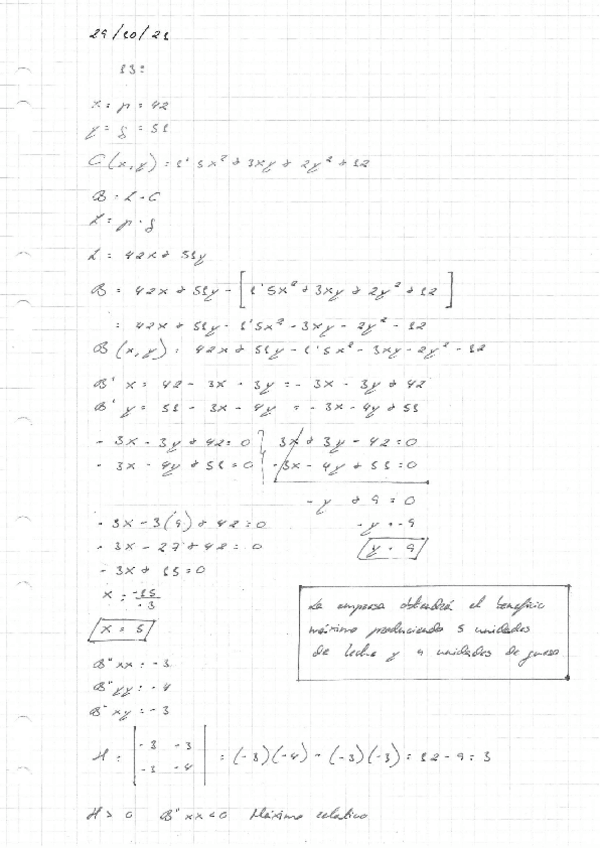 29/10/21
13:
x = p = 42
y = q = 51
C(x,y) = 1'5x² + 3xy + 2y² + 12
B = I - C
I = p · q
I = 42x + 51y
B = 42x + 51y - [1'5x² + 3xy + 2y² + 12]
= 42x + 51y - 1'5x² - 3xy - 2y² - 12
B(x,y) = 42x + 51y - 1'5x² - 3xy - 2y² - 12
B' x = 42 - 3x - 3y = - 3x - 3y + 42
B' y = 51 - 3x - 4y = - 3x - 4y + 51
- 3x - 3y + 42 = 0 } 3x + 3y - 42 = 0
- 3x - 4y + 51 = 0 - 3x - 4y + 51 = 0
- y + 9 = 0
- 3x - 3(9) + 42 = 0 - y = - 9
- 3x - 27 + 42 = 0 y = 9
- 3x + 15 = 0
x = -15/-3
x = 5
La empresa obtendrá el beneficio
máximo produciendo 5 unidades
de leche y 9 unidades de queso
B'' xx = - 3
B'' yy = - 4
B'' xy = - 3
H = | -3 -3 | = (-3)(-4) - (-3)(-3) = 12 - 9 = 3
| -3 -4 |
H > 0 B'' xx < 0 Máximo relativo